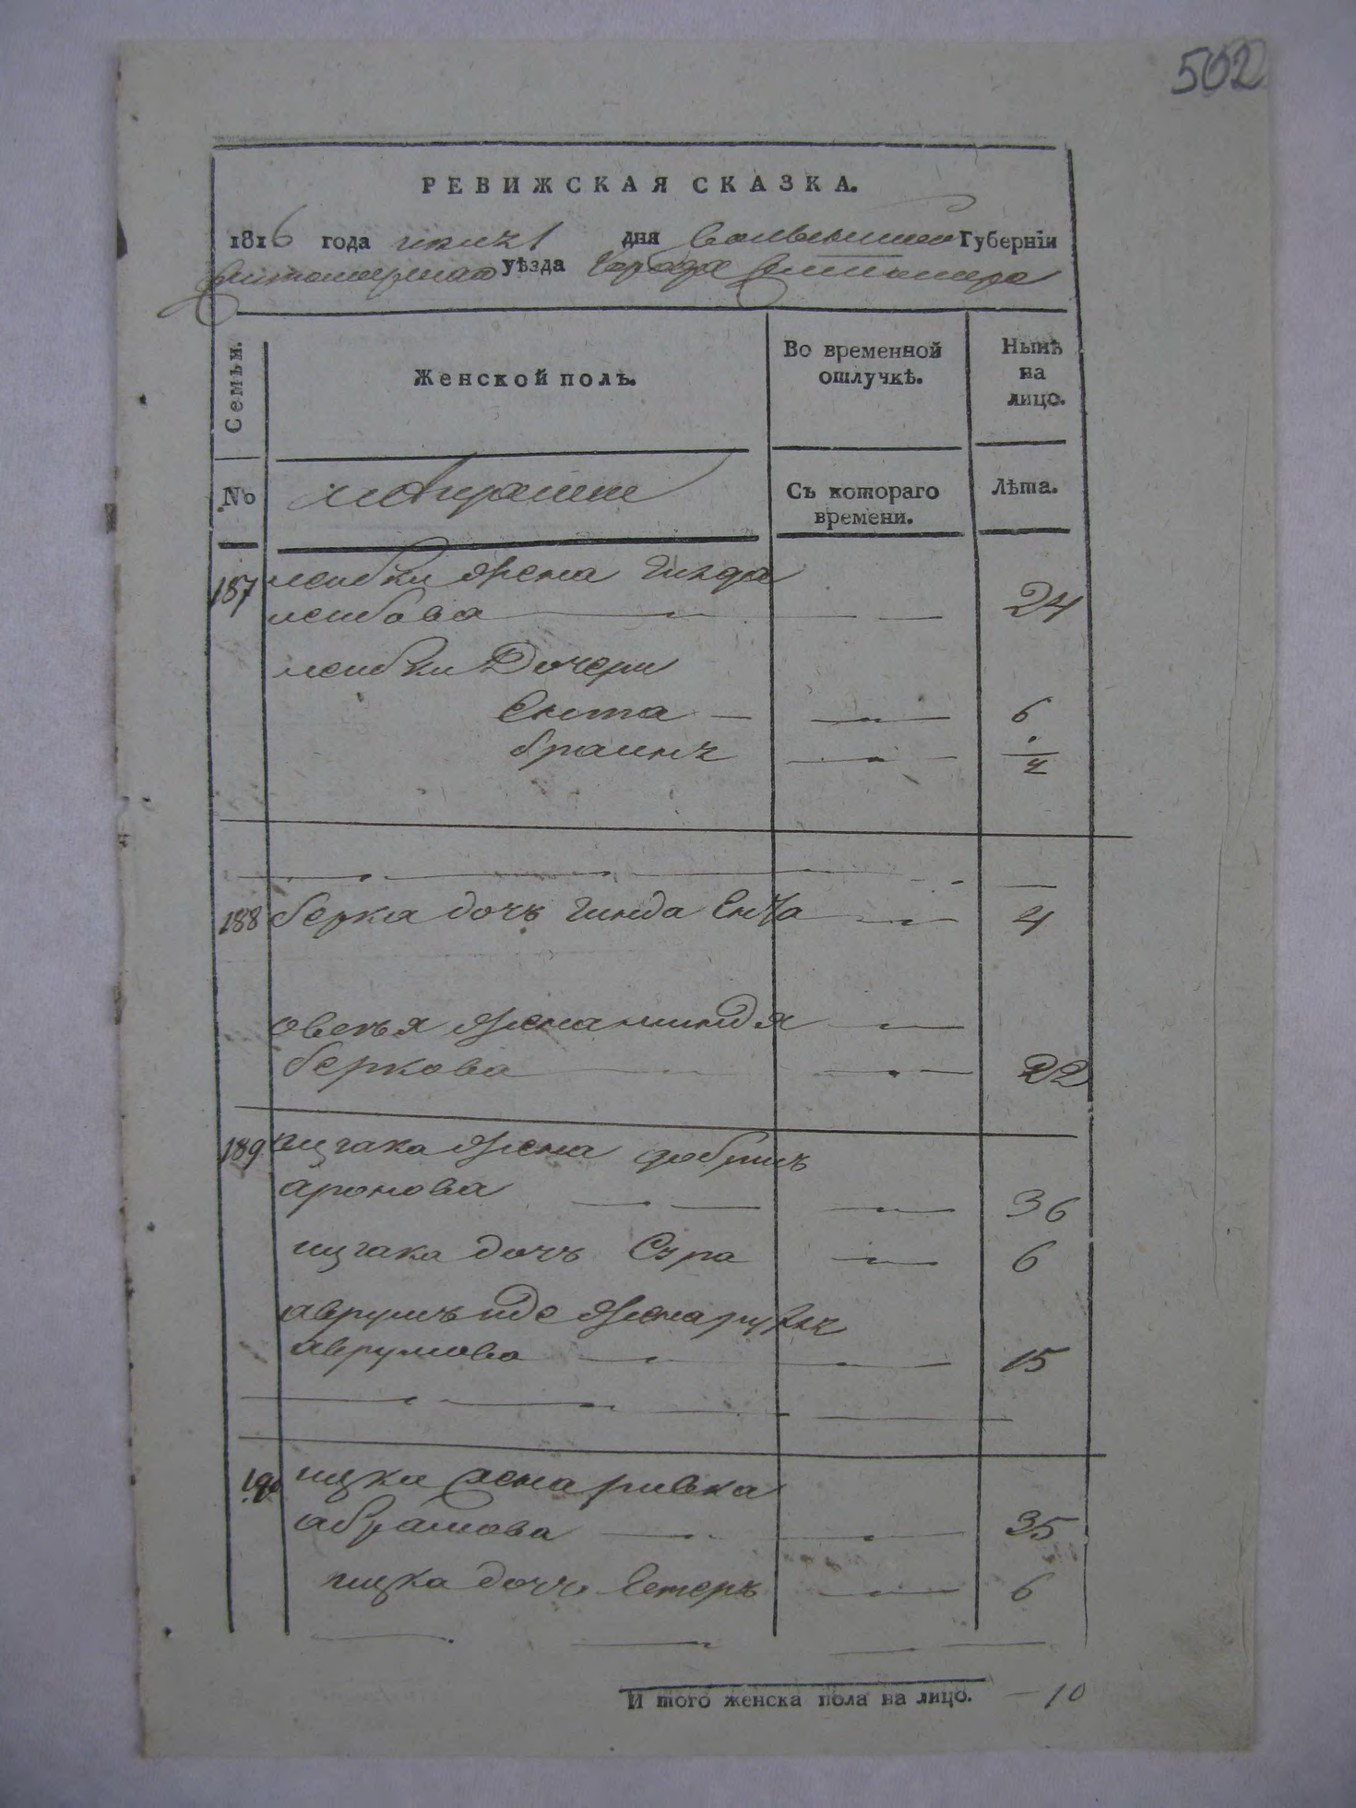 502
РЕВИЖСКАЯ СКАЗКА.
1816 года июля 1 дня Волынской Губернiи
Житомирского уѣзда Города Житомира
Семьи.
Женской полъ.
Во временной отлучкѣ.
Нынѣ на лицо.
№
Съ котораго времени.
Лѣта.
187 лейбки жена Гинда
лейбова 24
лейбки Дочери
Ента 6
браинъ
188 берка дочь Гинда Ента 4
жена миндя
беркова 22
189 ицгака жена добришъ
аронова 36
ицгака дочь Сура 6
жена
аврумова 15
190 ицка жена ривка
абрамова 35
ицка дочь Естеръ 6
И того женска пола на лицо. — 10